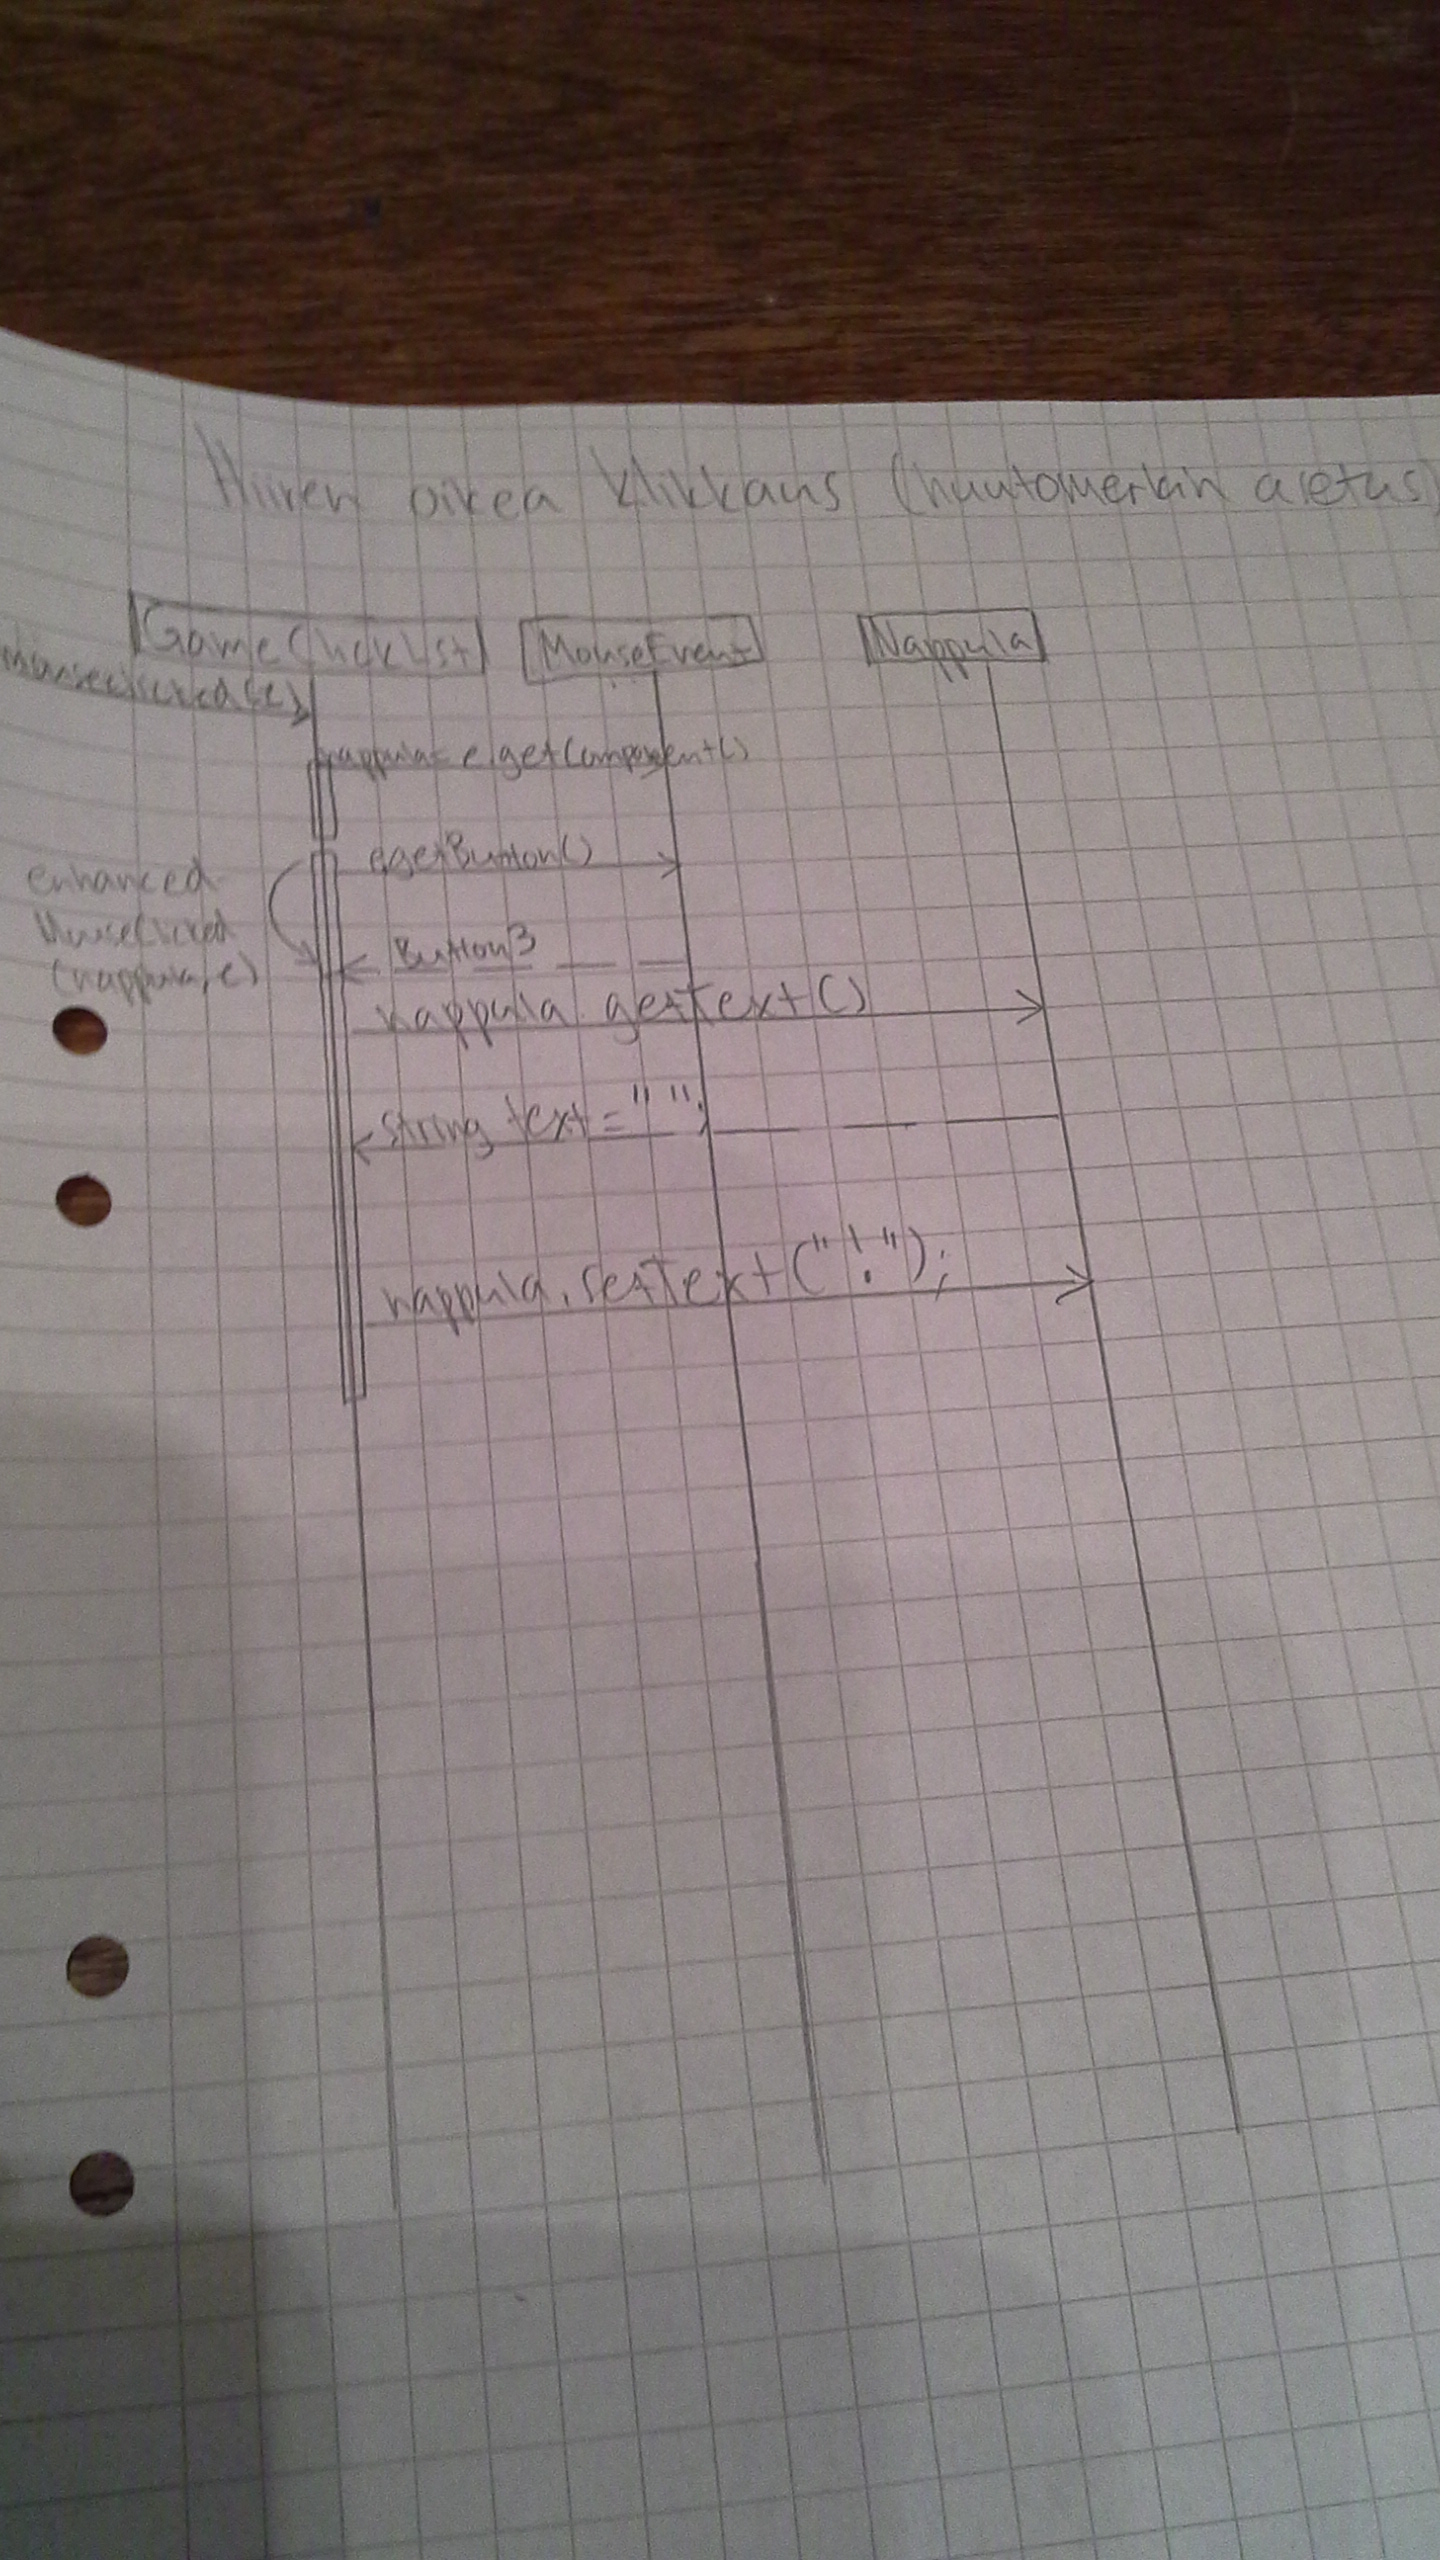 Hiiren oikea klikkaus (huutomerkin asetus)
GameClickList MouseEvent Nappula
mouseclicked(e)
nappula= e.getComponent()
e.getButton()
enhanced
MouseClicked
(nappula, e)
Button3
nappula.getText()
String text = " ";
nappula.setText("!");